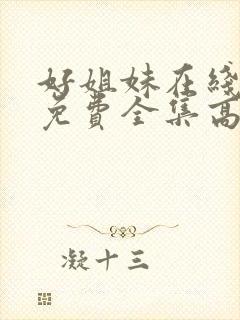 好姐妹在线
免费全集高
凝十三